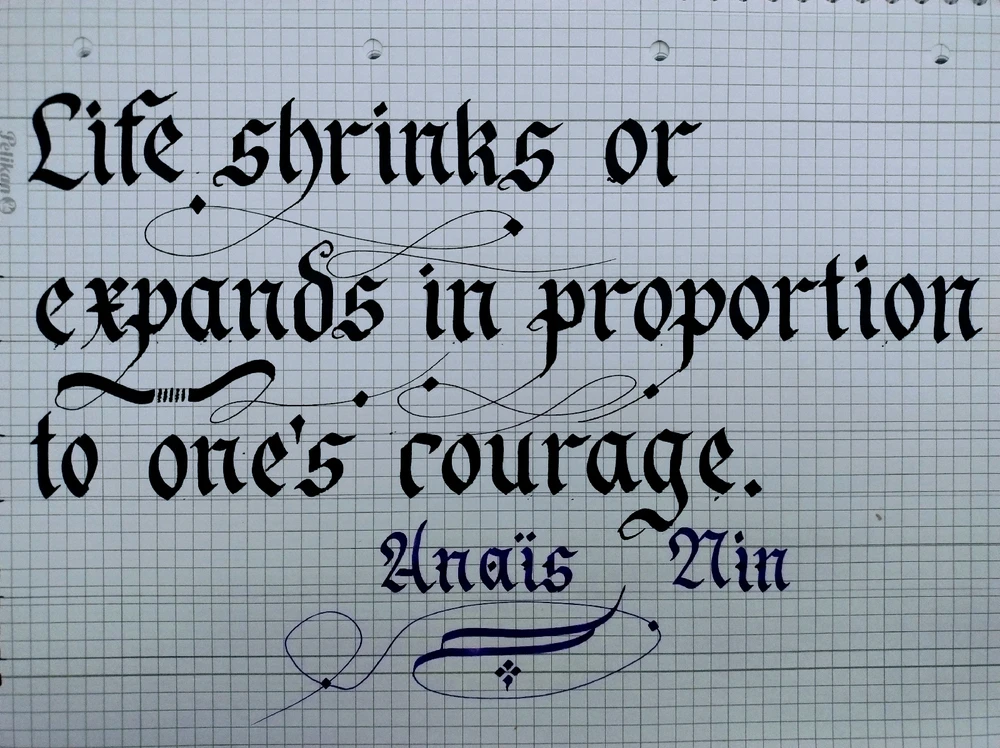 Life shrinks or
expands in proportion
to one's courage.
Anaïs Nin
Pelikan